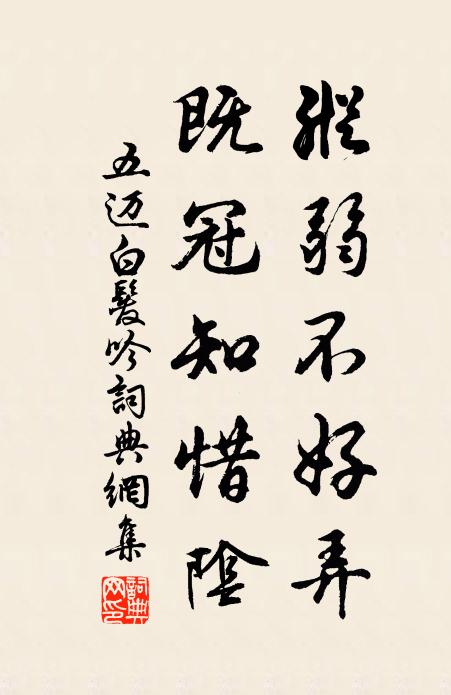 弱不好弄
既冠知惜陰
五迈白髮吟詞典網集
詞典网印